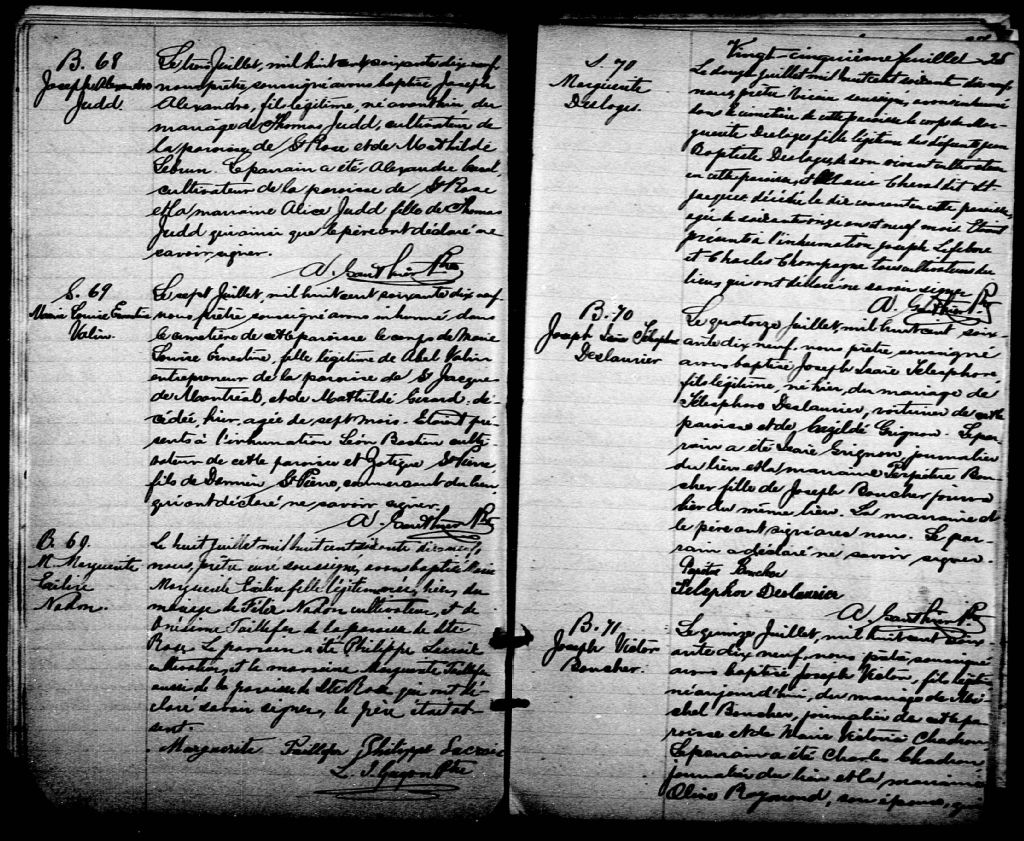 B. 68
Joseph Alexandre
Judd
Le trois Juillet, mil huit cent soixante dix neuf
nous prêtre soussigné avons baptisé Joseph
Alexandre, fils légitime, né avant hier du
mariage de Thomas Judd, cultivateur de
la paroisse de St Rose et de Mathilde
Lebrun. Le parrain a été Alexandre
cultivateur de la paroisse de St Rose
et la marraine Alice Judd fille de Thomas
Judd qui ainsi que le père ont déclaré ne
savoir signer.
A. Gauthier Ptre
S. 69
Marie Louise Ernestine
Valin
Le sept Juillet, mil huit cent soixante dix neuf
nous prêtre soussigné avons inhumé dans
le cimetière de cette paroisse le corps de Marie
Louise Ernestine, fille légitime de Abel Valin
entrepreneur de la paroisse de St Jacques
de Montréal, et de Mathilde Girard, dé-
cédée, hier, agée de sept mois. Etaient pré-
sents à l'inhumation Léon Bastien culti-
vateur de cette paroisse et Zotique St Pierre,
fils de Damien St Pierre, commercant du lieu
qui ont déclaré ne savoir signer.
A. Gauthier Ptre
B. 69.
M. Marguerite
Exilire
Nadon.
Le huit Juillet mil huit cent soixante dix neuf,
nous, prêtre curé soussigné, avons baptisé Marie
Marguerite Exilire fille légitime née, hier, du
mariage de Félix Nadon cultivateur, et de
Onésime Taillefer de la paroisse de Ste
Rose. Le parrain a été Philippe
cultivateur, et la marraine Marguerite Taillefer
aussi de la paroisse de Ste Rose, qui ont dé-
claré savoir signer, le père étant ab-
sent.
Marguerite Taillefer Philippe
L. J. Gagnon Ptre
Vingt-cinquième feuillet 25
S. 70
Marguerite
Desloges
Le douze juillet mil huit cent soixante dix neuf
nous prêtre vicaire soussigné, avons inhumé
dans le cimetière de cette paroisse le corps de Mar-
guerite Desloges fille légitime des défunts Jean
Baptiste Desloges, de son vivant cultivateur
en cette paroisse, et Marie Cheval dit St.
Jacques décédée le dix courant en cette paroisse,
agée de soixante onze ans et neuf mois. Etaient
présents à l'inhumation Joseph Lefebvre
et Charles Champagne tous cultivateurs du
lieu qui ont déclaré ne savoir signer
A. Gauthier Ptre
B. 70
Joseph Isaie Télesphore
Deslaurier
Le quatorze juillet, mil huit cent soix-
ante dix neuf, nous prêtre soussigné
avons baptisé Joseph Isaie Télesphore,
fils légitime, né hier, du mariage de
Télesphore Deslaurier, voiturier de cette
paroisse et de Exzildé Grignon. Le par-
rain a été Isaie Grignon, journalier
du lieu et la marraine Perpétue Bou-
cher fille de Joseph Boucher journa-
lier du même lieu. La marraine et
le père ont signé avec nous. Le par-
rain a déclaré ne savoir signer.
Boucher
Telesphor Deslaurier
A. Gauthier Ptre
B. 71
Joseph Victor
Boucher.
Le quinze Juillet, mil huit cent soix-
ante dix neuf, nous prêtre, soussigné
avons baptisé Joseph Victor, fils légitime
né aujourd'hui, du mariage de Mi-
chel Boucher, journalier de cette pa-
roisse et de Marie Victorie Chadron
Le parrain a été Charles Chadron
journalier du lieu et la marraine
Olive Raymond, son épouse, qui